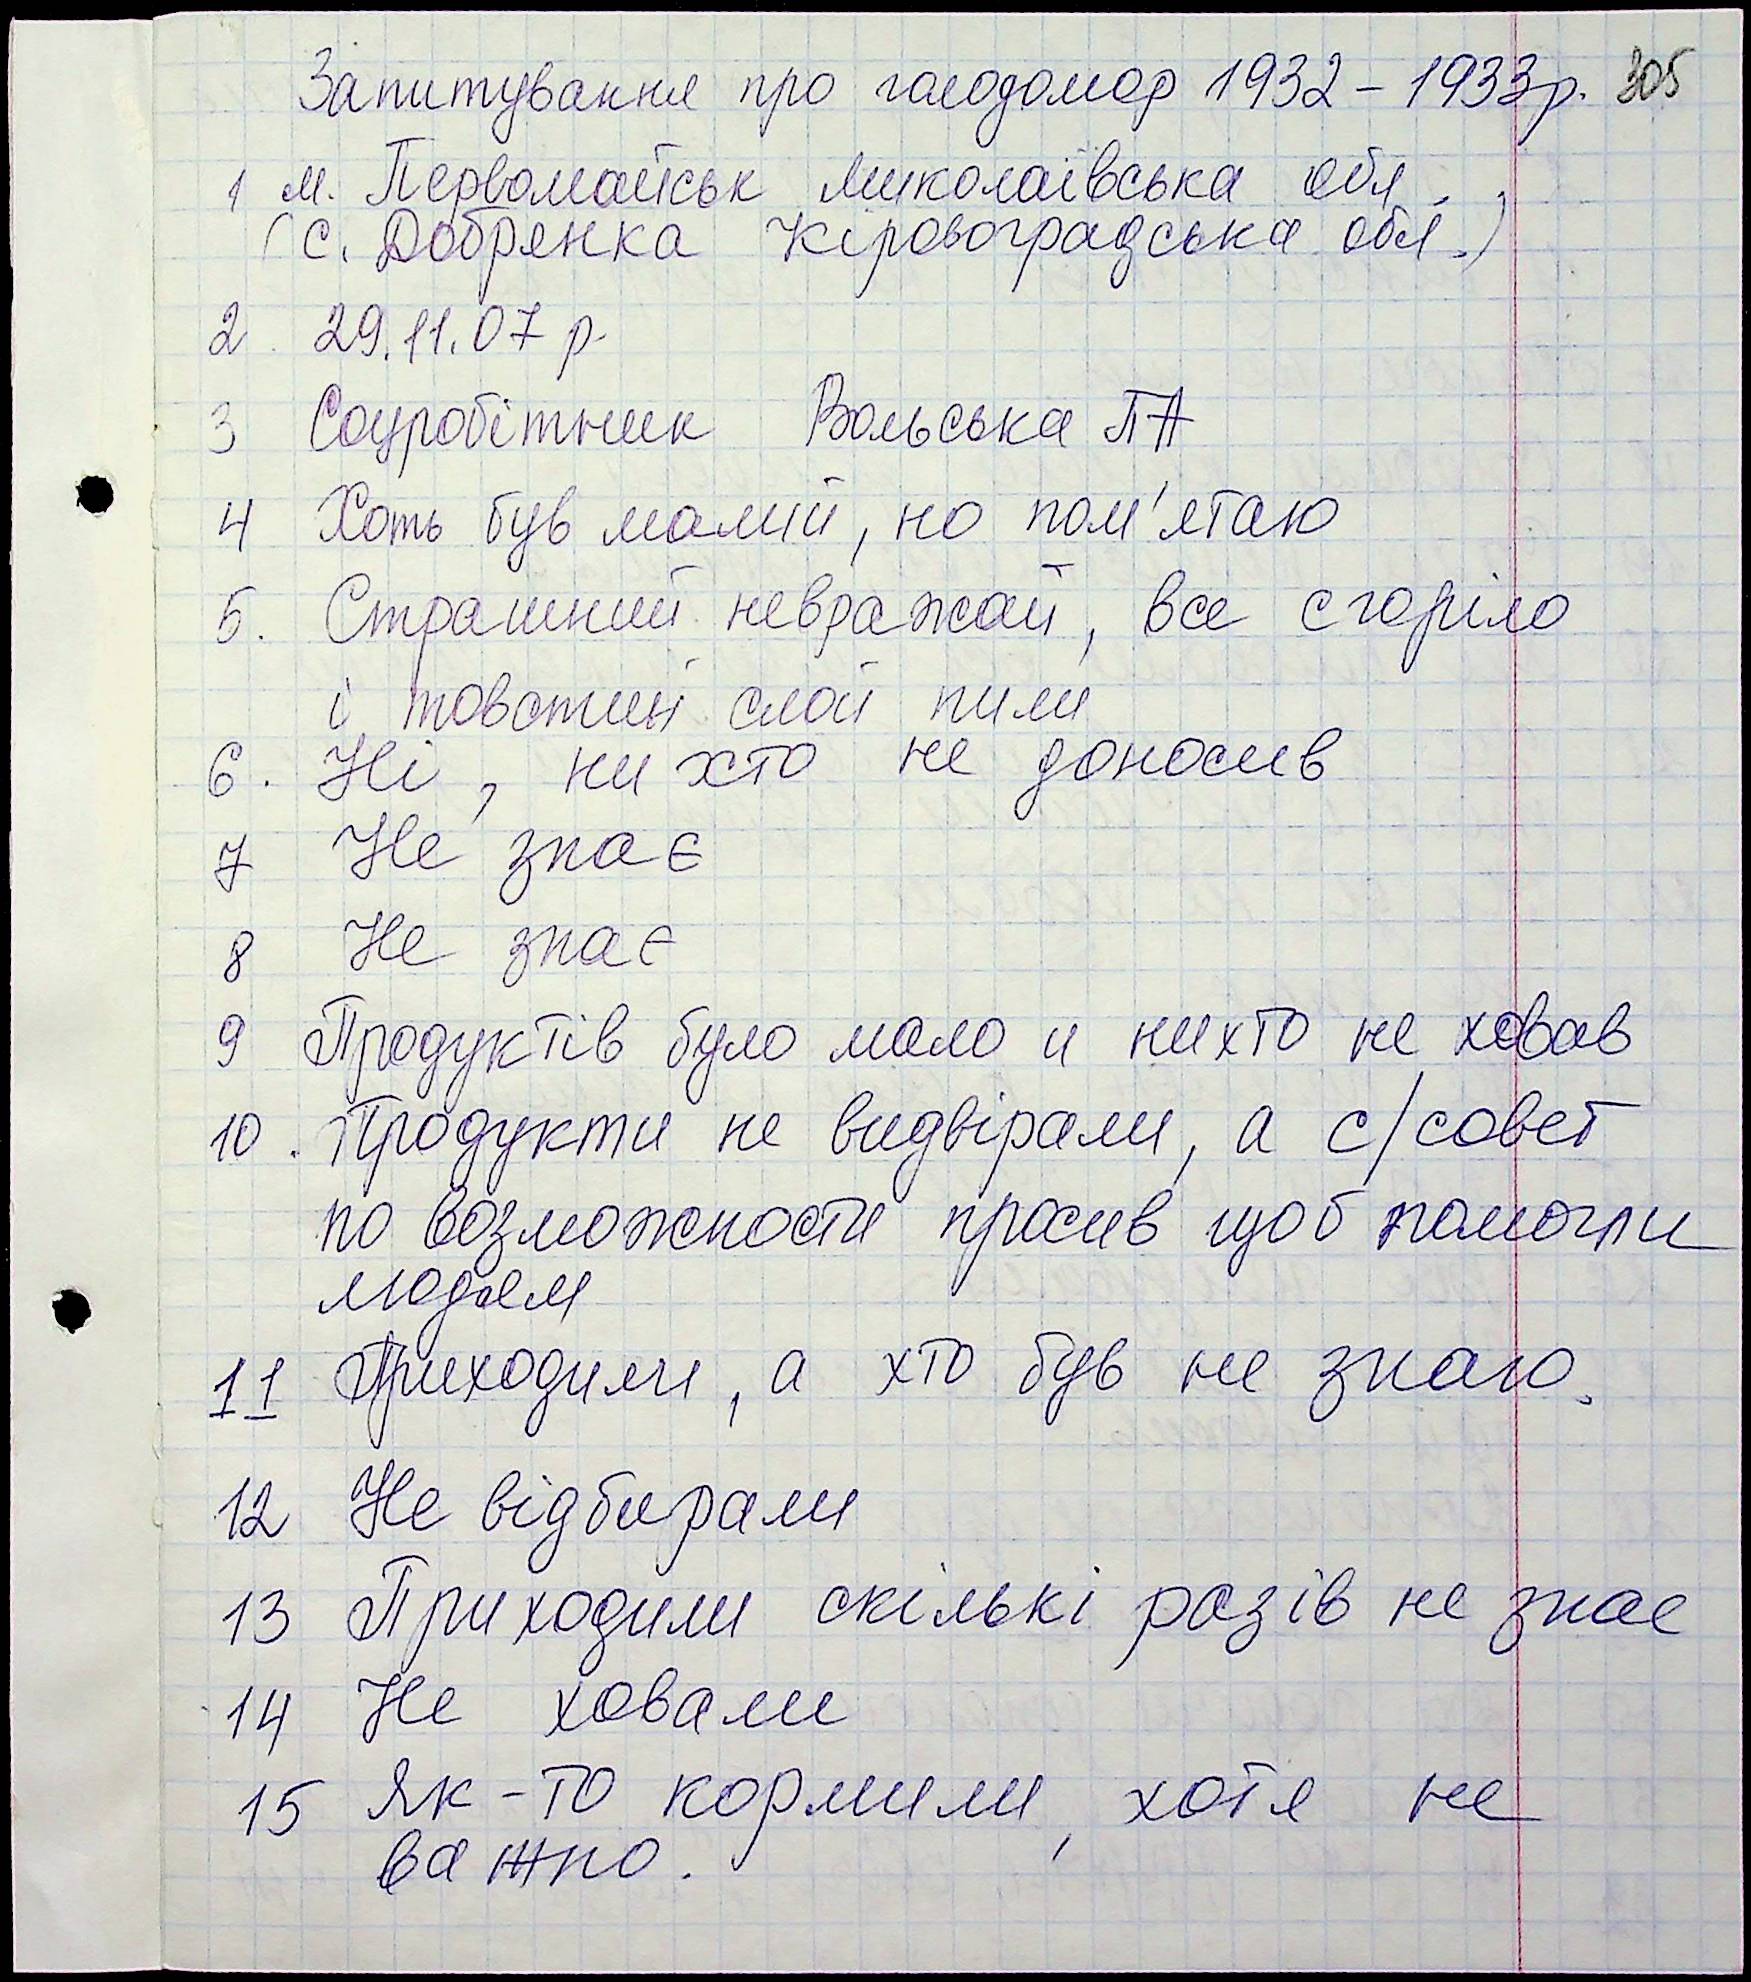 Запитування про голодомор 1932 - 1933р. 305
1 м. Первомайськ Миколаївська обл.,
(с. Добрянка Кіровоградська обл.)
2. 29.11.07 р.
3 Соцробітник Вольська ЛА
4 Хоть був малий, но пам'ятаю
5. Страшний невражай, все сгоріло
і товстий слой пили
6. Ні, ни хто не доносив
7 Не знає
8 Не знає
9 Продуктів було мало и нихто не ховав
10. Продукти не видвірали, а с/совет
по возможности просив щоб помогли
людям
11 Приходили, а хто був не знаю.
12 Не відбирали
13 Приходили скількі разів не знає
14 Не ховали
15 Як-то кормили, хотя не
важно.